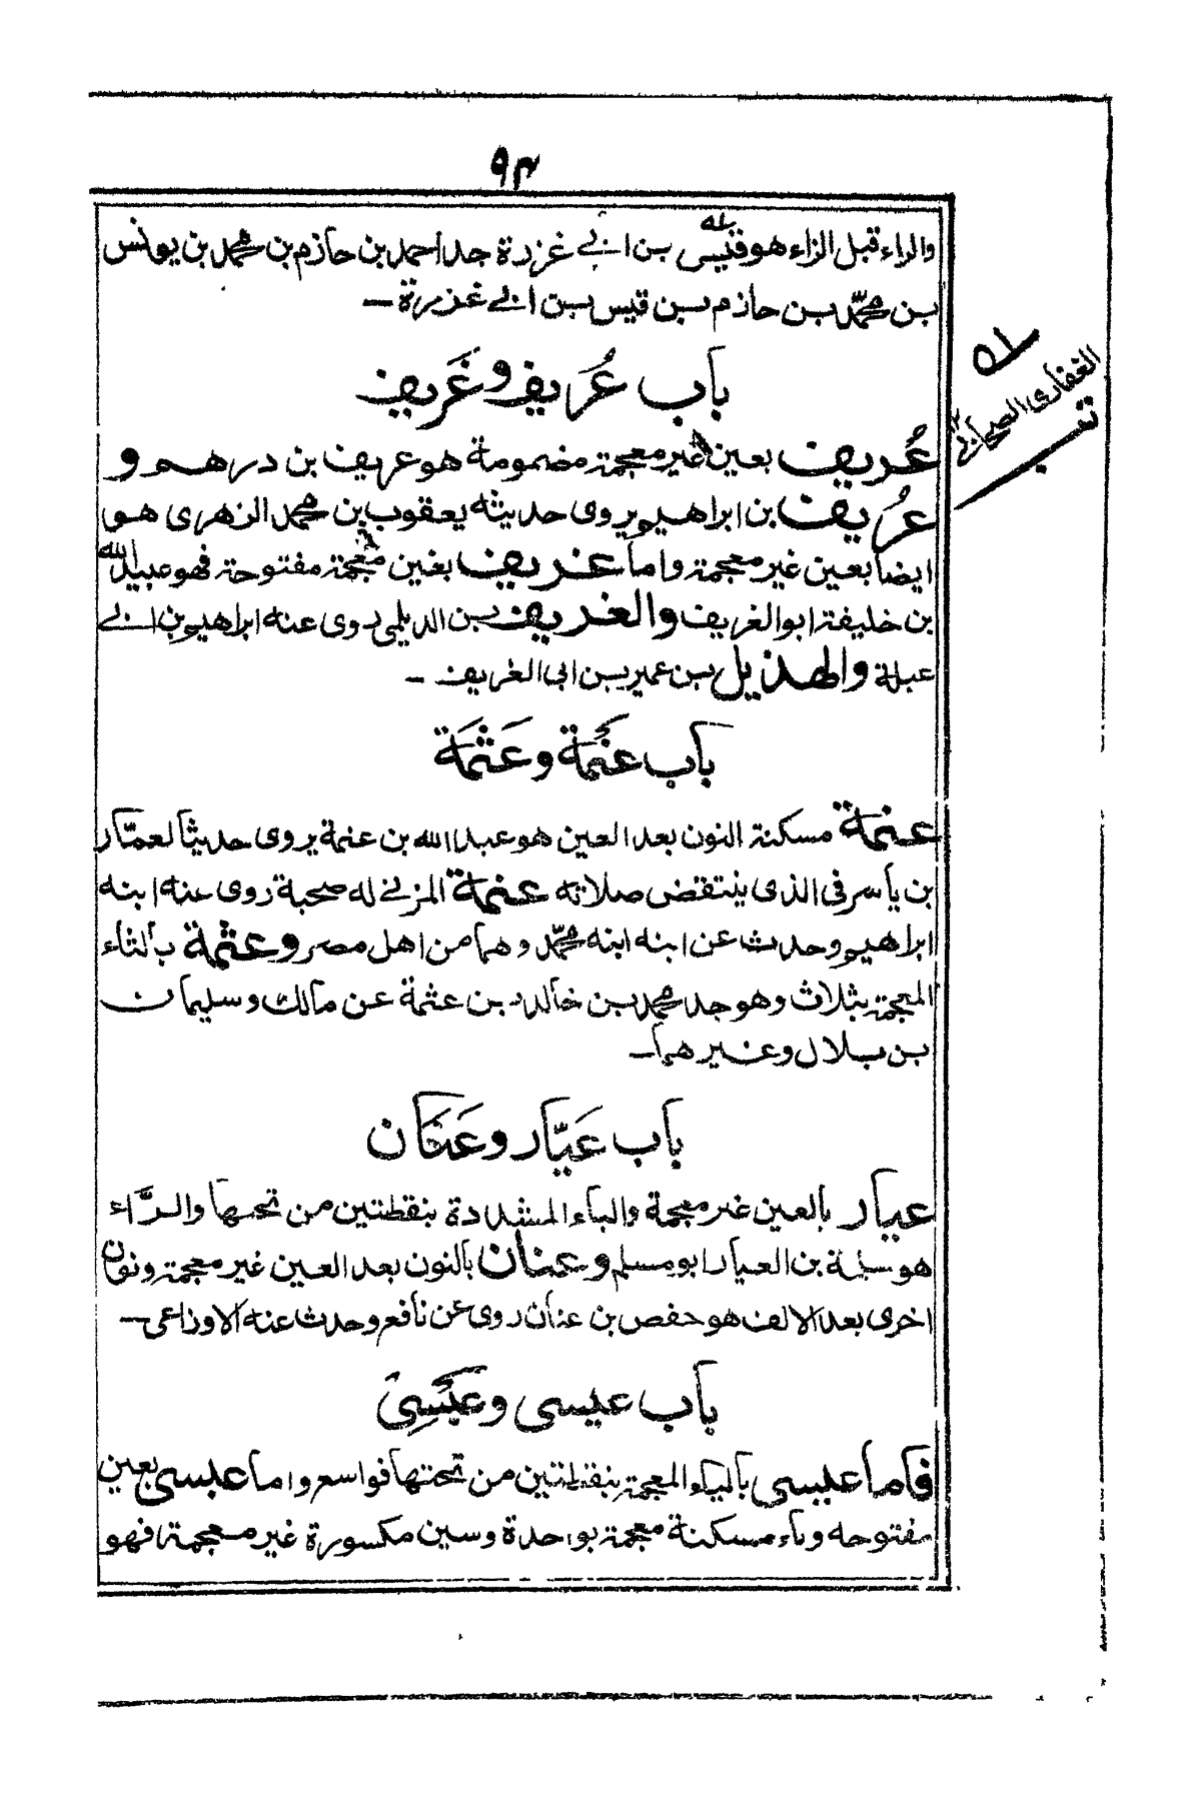 ٩٣
والراء قبل الزاء هو قيس بن ابي غرزة جد احمد بن حازم بن محمد بن يونس
بن محمّد بن حازم بن قيس بن ابي غرزة –
باب عُريف وغَريف
عُريف بعين غير معجمة مضمومة هو عريف بن درهم و
عُريف بن ابراهيم يروى حديثه يعقوب بن محمد الزهرى هو
ايضا بعين غير معجمة واما غريف بغين معجمة مفتوحة فهو عبيد الله
بن خليفة ابو الغريف والغريف بن الديلمي روى عنه ابراهيم بن ابي
عبلة والهذيل بن عمير بن ابى الغريف –
باب عَنمَة وعَثمَة
عنمة مسكنة النون بعد العين هو عبد الله بن عنمة يروى حديثا لعمّار
بن ياسر فى الذى ينتقض صلاته عنمة المزني له صحبة روى عنه ابنه
ابراهيم وحدث عن ابنه ابنه محمّد وهما من اهل مصر وعثمة بالثاء
المعجمة بثلاث وهو جد محمد بن خالد بن عثمة عن مالك وسليمان
بن بلال وغيرهما –
باب عَيّار وعَنان
عيار بالعين غير معجمة والياء المشددة بنقطتين من تحتها والرّاء
هو سلمة بن العيار ابو مسلم وعنان بالنون بعد العين غير معجمة ونون
اخرى بعد الالف هو حفص بن عنان روى عن نافع وحدث عنه الاوزاعى –
باب عيسى وعَبْسِى
فاما عيسى بالياء المعجمة بنقطتين من تحتها فواسع واما عبسى بعين
مفتوحه وباء مسكنة معجمة بواحدة وسين مكسورة غير معجمة فهو
الغفارى الصحابي ١٢